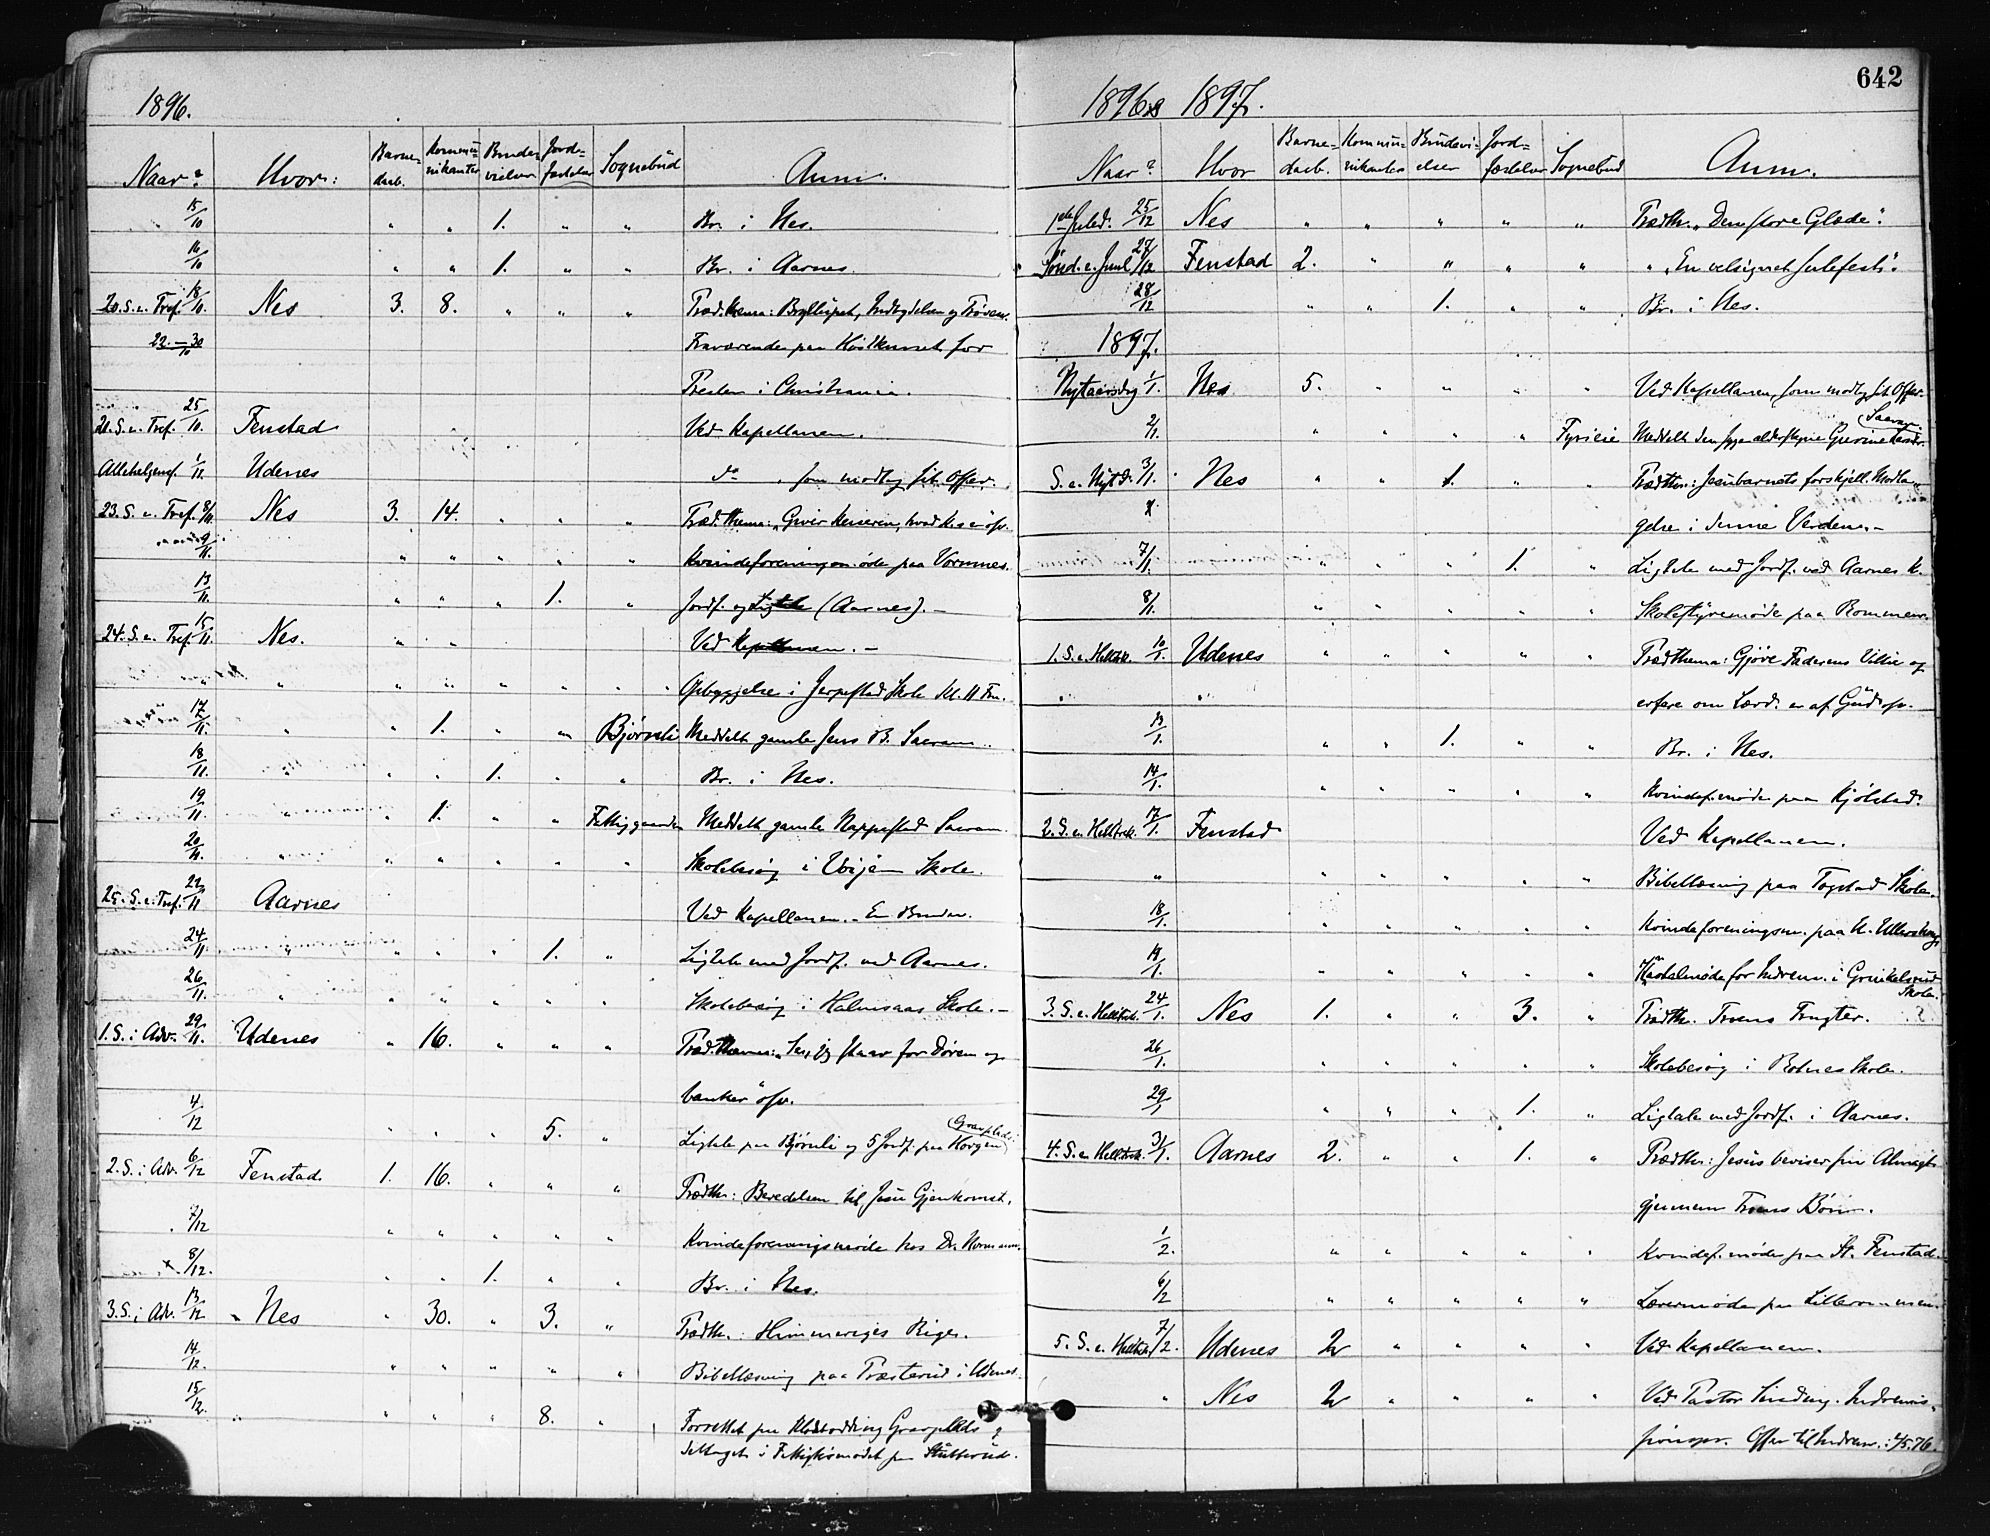 642
1896.
Naar? Hvor: Barne-daab. Kommunikanter Brudevielser Jordfæstelser Sognebud Anm.
15/10 " " 1. " " Br. i Nes.
16/10 " " 1. " " Br. i Aarnes.
20. S. e. Tref. 18/10. Nes 3. 8. " " " Præd. thema: Bryllupet, Indbydelsen og
22.–30/10 Fraværende paa for
Prester i Christiania.
21. S. e. Tref. 25/10. Fenstad Ved Kapellanen.
Allehelgensf. 1/11. Udenes do , som modtog sit Offer.
23. S. e. Tref. 8/11. Nes 3. 14. " " " Præd. thema: "Giver Keiseren, hvad osv.
9/11. " " " " " Kvindeforeningsmøde paa Vormnes.
13/11. " " " 1. " Jordf. og Ligtale (Aarnes). –
24. S. e. Tref. 15/11. Nes. " " Ved Kapellanen. –
" " " " " " Opbyggelse i Skole Kl.
17/11. " " 1. " " Bjørnli Meddelt gamle Jens B. Sacram.
18/11. " " 1. " " Br. i Nes.
19/11 " 1. " " Fattiggaarden Meddelt gamle Nappestad Sacram.
20/11. " " " " " " Skolebesøg i Skole.
25. S. e. Tref. 22/11 Aarnes Ved Kapellanen. – En Brudev.
24/11. " " " " 1. " Ligtale med Jordf. ved Aarnes.
26/11. " " " " " " Skolebesøg i Halmsaas Skole. –
1. S. i Adv. 29/11. Udenes " 16. " " " Præd. thema: "Se, jeg staar for Døren og
banker" osv.
4/12 " " " 5. " Ligtale paa Bjørnli og 5 Jordf. paa Horgen Gravplads.
2. S. i Adv. 6/12 Fenstad 1. 16. " " " Prædth.: Beredelsen til Jesu Gjenkomst.
7/12 " " " " " Kvindeforeningsmøde hos Dr.
8/12. " " 1. " " Br. i Nes.
3. S. i Adv. 13/12 Nes " 30. " 3. " Prædth.: Himmeriges Rige.
14/12. " " " " " Bibellæsning paa Præsterud i Udenes
15/12. " " " " 8. " Forrettet paa Gravplads &
deltaget i paa
1896 & 1897.
Naar? Hvor Barne-daab. Kommunikanter Brudevielser Jordfæstelser Sognebud Anm.
1ste Juled. 25/12 Nes " " " " " Prædth. "Den store Glæde".
Sønd. e. Juul 27/12 Fenstad 2. " " " " " "En velsignet Julefest".
28/12 " " 1. " " Br. i Nes.
1897.
Nytaarsdag 1/1. Nes 5. " " " Ved Kapellanen, som modtog sit Offer.
2/1. " " " " Meddelt den syge Sacram.
S. e. Nytd. 3/1. Nes " " 1. " " Prædthm.: Jesubarnets forskjell. Modta-
gelse i denne Verden. –
7/1. " " " 1. " Ligtale med Jordf. ved Aarnes K.
8/1. " " " " " Skolestyremøde paa Rommen.
1. S. e. Helltrek. 10/1. Udenes " " " " " Prædthema: Gjøre Faderens Villie og
" " erfare om Lærd. er af Gud osv.
13/1. " " 1. " " Br. i Nes.
14/1. " " " " " Kvindef.møde paa Kjølstad.
2. S. e. Helltrek. 17/1. Fenstad Ved Kapellanen.
" " " " " " Bibellæsning paa Skole.
18/1. " " " " " Kvindeforeningsm. paa
19/1. " " " " " for Indrem. i Skole.
3. S. e. Helltrek. 24/1. Nes 1. " " 3. " Prædth. Troens Frugter.
26/1. " " " " " Skolebesøg i Rotnes Skole.
29/1 " " " 1. " Ligtale med Jordf. i Aarnes.
4. S. e. Helltrek. 3/1. Aarnes 2. " " 1. " Prædthr.: Jesus beviser sin Almagt
gjennem Troens Bøn.
1/2. " " " " " Kvindef.møde paa St. Fenstad
6/2 " " " " " Lærermøde paa
5. S. e. Helltrek. 7/2. Udenes 2 " " " " Ved Kapellanen.
" Nes 2 " " " " Ved Pastor Sinding. Indremis-
sionspr. Offer til Indrem.: 45.76.